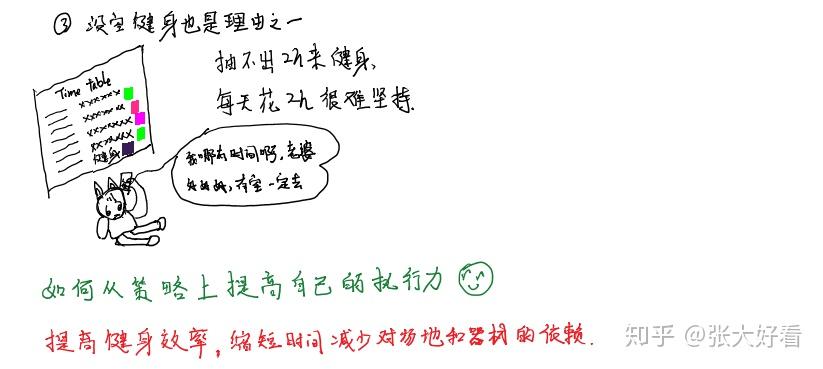 ③ 没空健身也是理由之一
抽不出2h来健身、
每天花2h很难坚持.
Time table
xxxxxx
xxxxxx
xxxxxxx
xxxxxx
健身
我哪有时间啊,老婆
好好好,有空一定去
如何从策略上提高自己的执行力
提高健身效率,缩短时间减少对场地和器材的依赖.
知乎 @张大好看